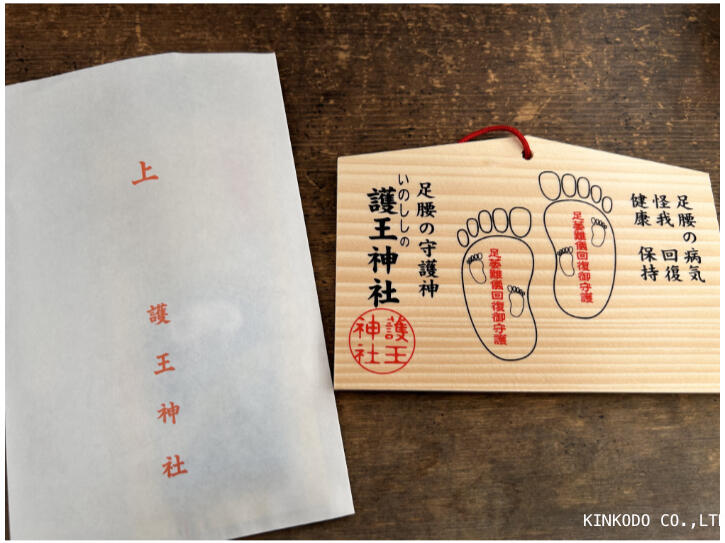 上
護王神社
足腰の病気
怪我 回復
健康 保持
足萎難儀回復御守護
足萎難儀回復御守護
足腰の守護神
いのししの
護王神社
護王
神社
KINKODO CO.,LT